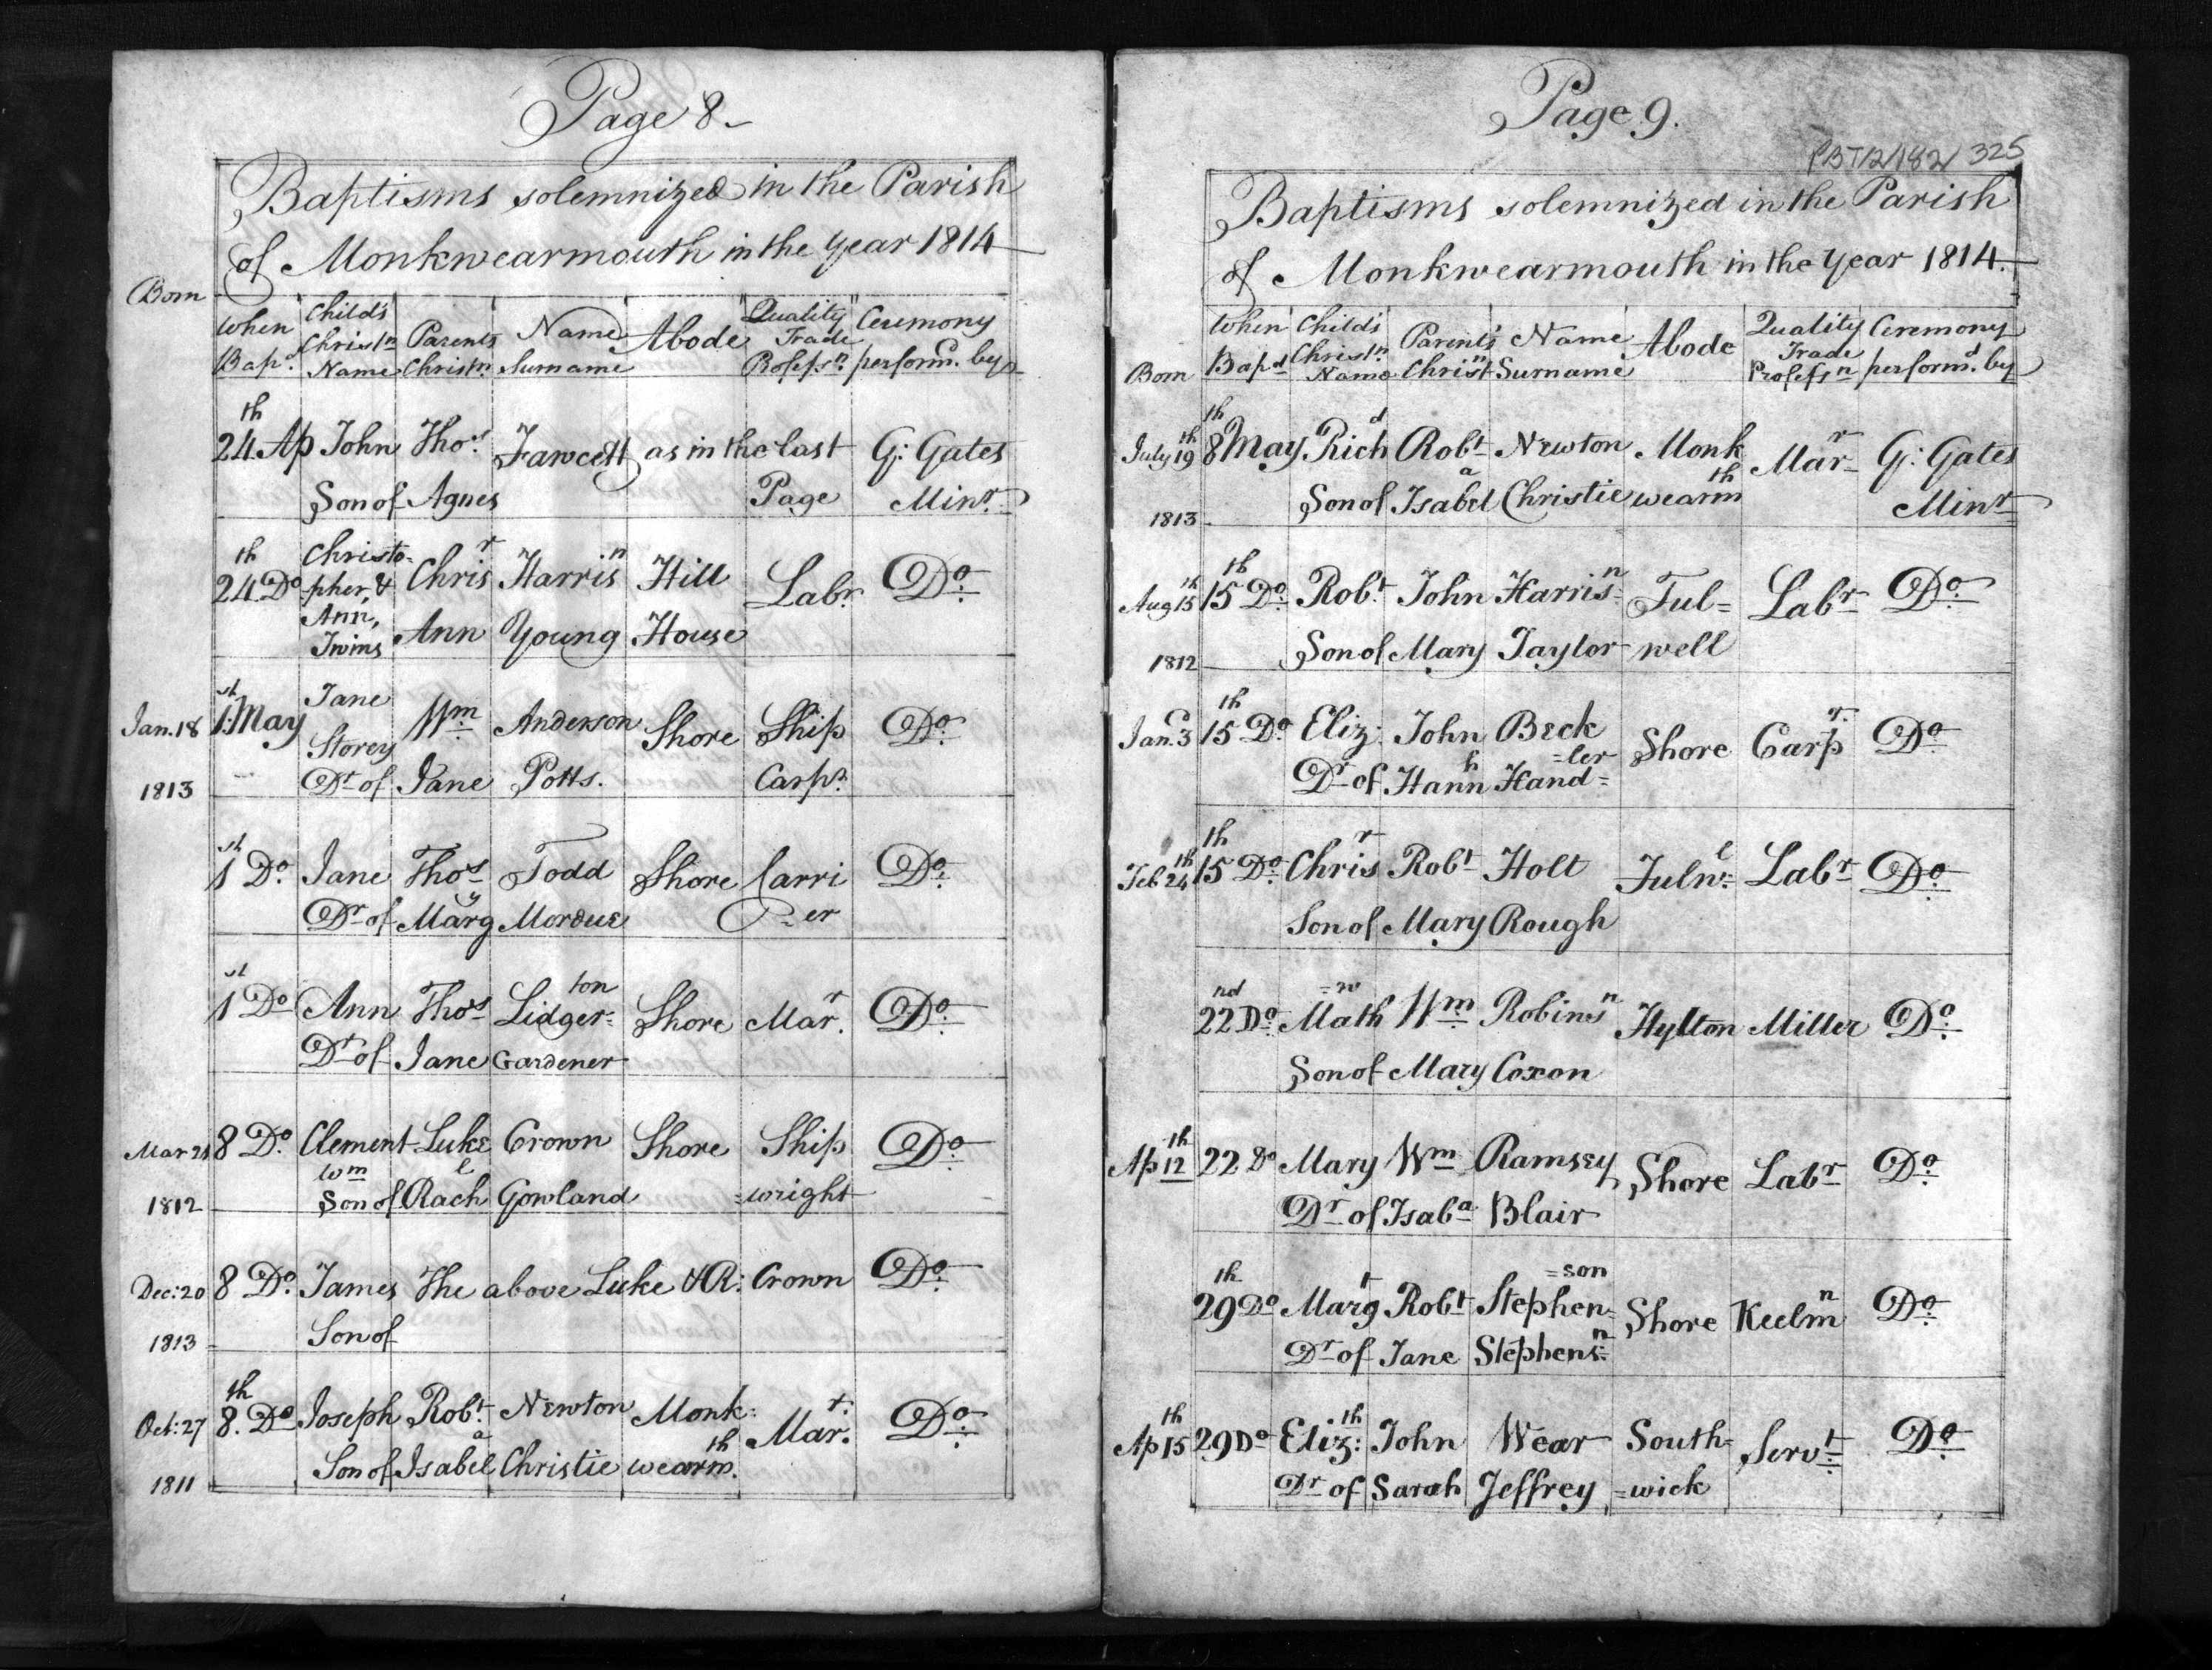 Page 8
Baptisms solemnized in the Parish
of Monkwearmouth in the Year 1814
Born When Bapd. Childs Christn Name Parents Christn. Name Surname Abode Quality Trade Profefsn. Ceremony performd. by
24th. Ap John Thos. Fawcett as in the last G: Gates
Son of Agnes Page Minr.
24th Do Christo- Chrisr Harrisn Hill Labr. Do.
pher, &
Ann,
Twins Ann Young House
Jan. 18 1st. May Jane Wm Anderson Shore Ship Do.
Storey
1813 Dr of Jane Potts. Carpr.
1st Do. Jane Thos Todd Shore Carri Do.
Dr of Margy Mordue er
1st Do Ann Thos Lidger=ton Shore Marr. Do.
Dr of Jane Gardener
Mar 21 8 Do. Clement Luke Crown Shore Ship Do.
Wm
1812 Son of Rachl Gowland =wright
Dec: 20 8 Do. James The above Luke & R: Crown Do.
1813 Son of
Oct: 27 8th. Do Joseph Robt. Newton Monk= Marr. Do.
1811 Son of Isabella Christie wearmth.
Page 9.
PBT/2/182/ 325
Baptisms solemnized in the Parish
of Monkwearmouth in the Year 1814.
Born When Bapd Childs Christn Name Parents Christn Name Surname Abode Quality Trade Profefsn Ceremony performd. by
July 19th 8th May Richd Robt Newton Monk Marr G: Gates
1813 Son of Isabella Christie wearmth Minr
Aug 15th 15th Do. Robt. John Harrisn Ful= Labr Do.
1812 Son of Mary Taylor well
Jan. 3 15th Do. Eliz: John Beck Shore Carpr. Do.
Dr of Hannh Hand= =ler
Feb 24th 15th Do. Chrisr Robt Holt Fulwl: Labr Do.
Son of Mary Rough
22nd Do. Math=w Wm. Robinsn Hylton Miller Do.
Son of Mary Coxon
Ap 12th 22 Do Mary Wm Ramsey Shore Labr Do.
Dr of Isaba Blair
29th Do Margt Robt Stephen=son Shore Keelmn Do.
Dr of Jane Stephensn=
Ap 15th 29 Do Eliz:th John Wear South- Servt. Do.
Dr of Sarah Jeffrey =wick